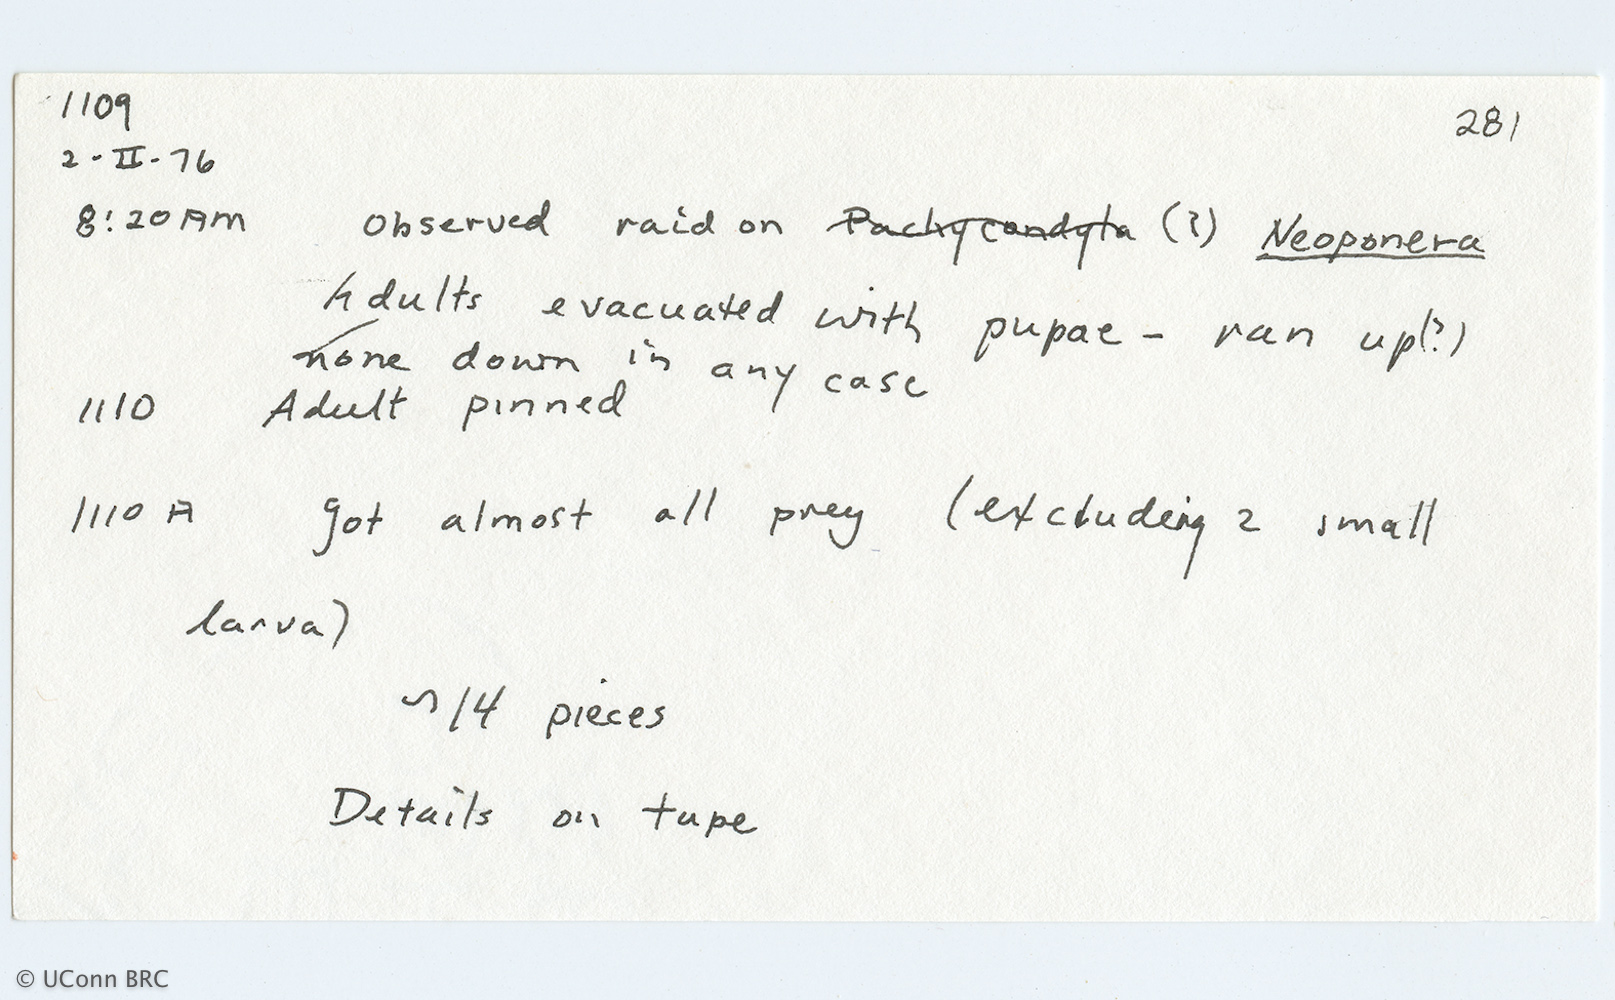 1109
281
2-II-76
8:20 AM Observed raid on Pachycondyla (?) Neoponera
Adults evacuated with pupae - ran up(?)
none down in any case
1110 Adult pinned
1110 A got almost all prey (excluding 2 small
larva)
~14 pieces
Details on tape
© UConn BRC